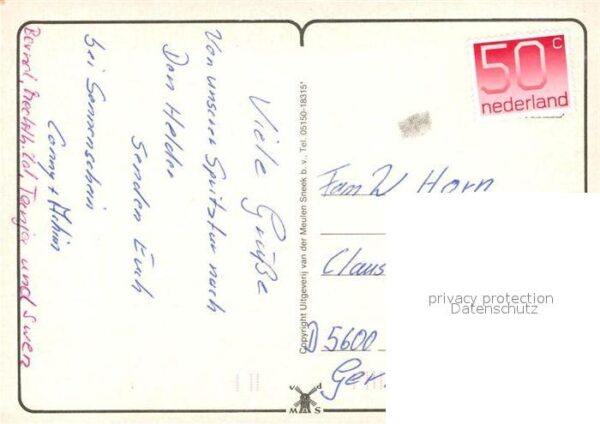 Viele Grüße
Von unserer Spritztur nach
Den Helder
Senden Euch
bei Sonnenschein
Conny + Achim
Bernd, Mechthild, Tanja und Swen
Copyright Uitgeverij van der Meulen Sneek b.v., Tel. 05150-18315*
50 c
nederland
Fam W Horn
Claus
D 5600
Ger
privacy protection
Datenschutz
v d
MAS